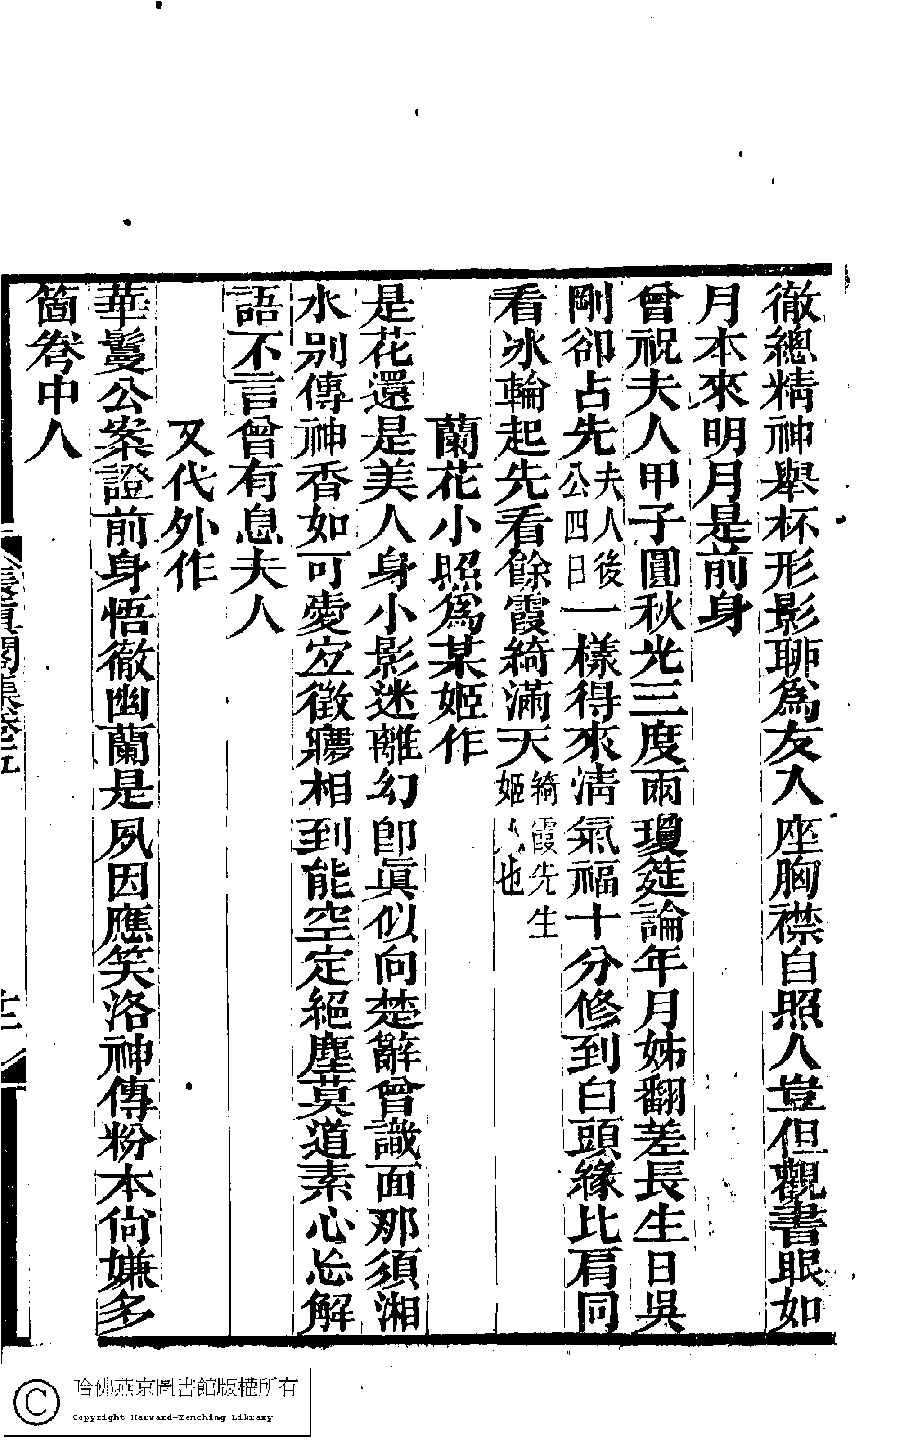 徹總精神舉杯形影聊爲友入座胸襟自照人豈但觀書眼如
月本來明月是前身
曾祝夫人甲子圓秋光三度兩瓊筵論年月姊翻差長生日吳
剛卻占先夫人後公四日一樣得來淸氣福十分修到白頭緣比肩同
看冰輪起先看餘霞綺滿天綺霞先生姬人也
蘭花小照爲某姬作
是花還是美人身小影迷離幻卽眞似向楚辭曾識面那須湘
水别傳神香如可愛宜徵㝱相到能空定絕塵莫道素心忘解
語不言曾有息夫人
又代外作
華鬘公案證前身悟徹幽蘭是夙因應笑洛神傳粉本尙嫌多
箇卷中人
長眞閣集卷五
十二
哈佛燕京圖書館版權所有
Copyright Harvard-Yenching Library